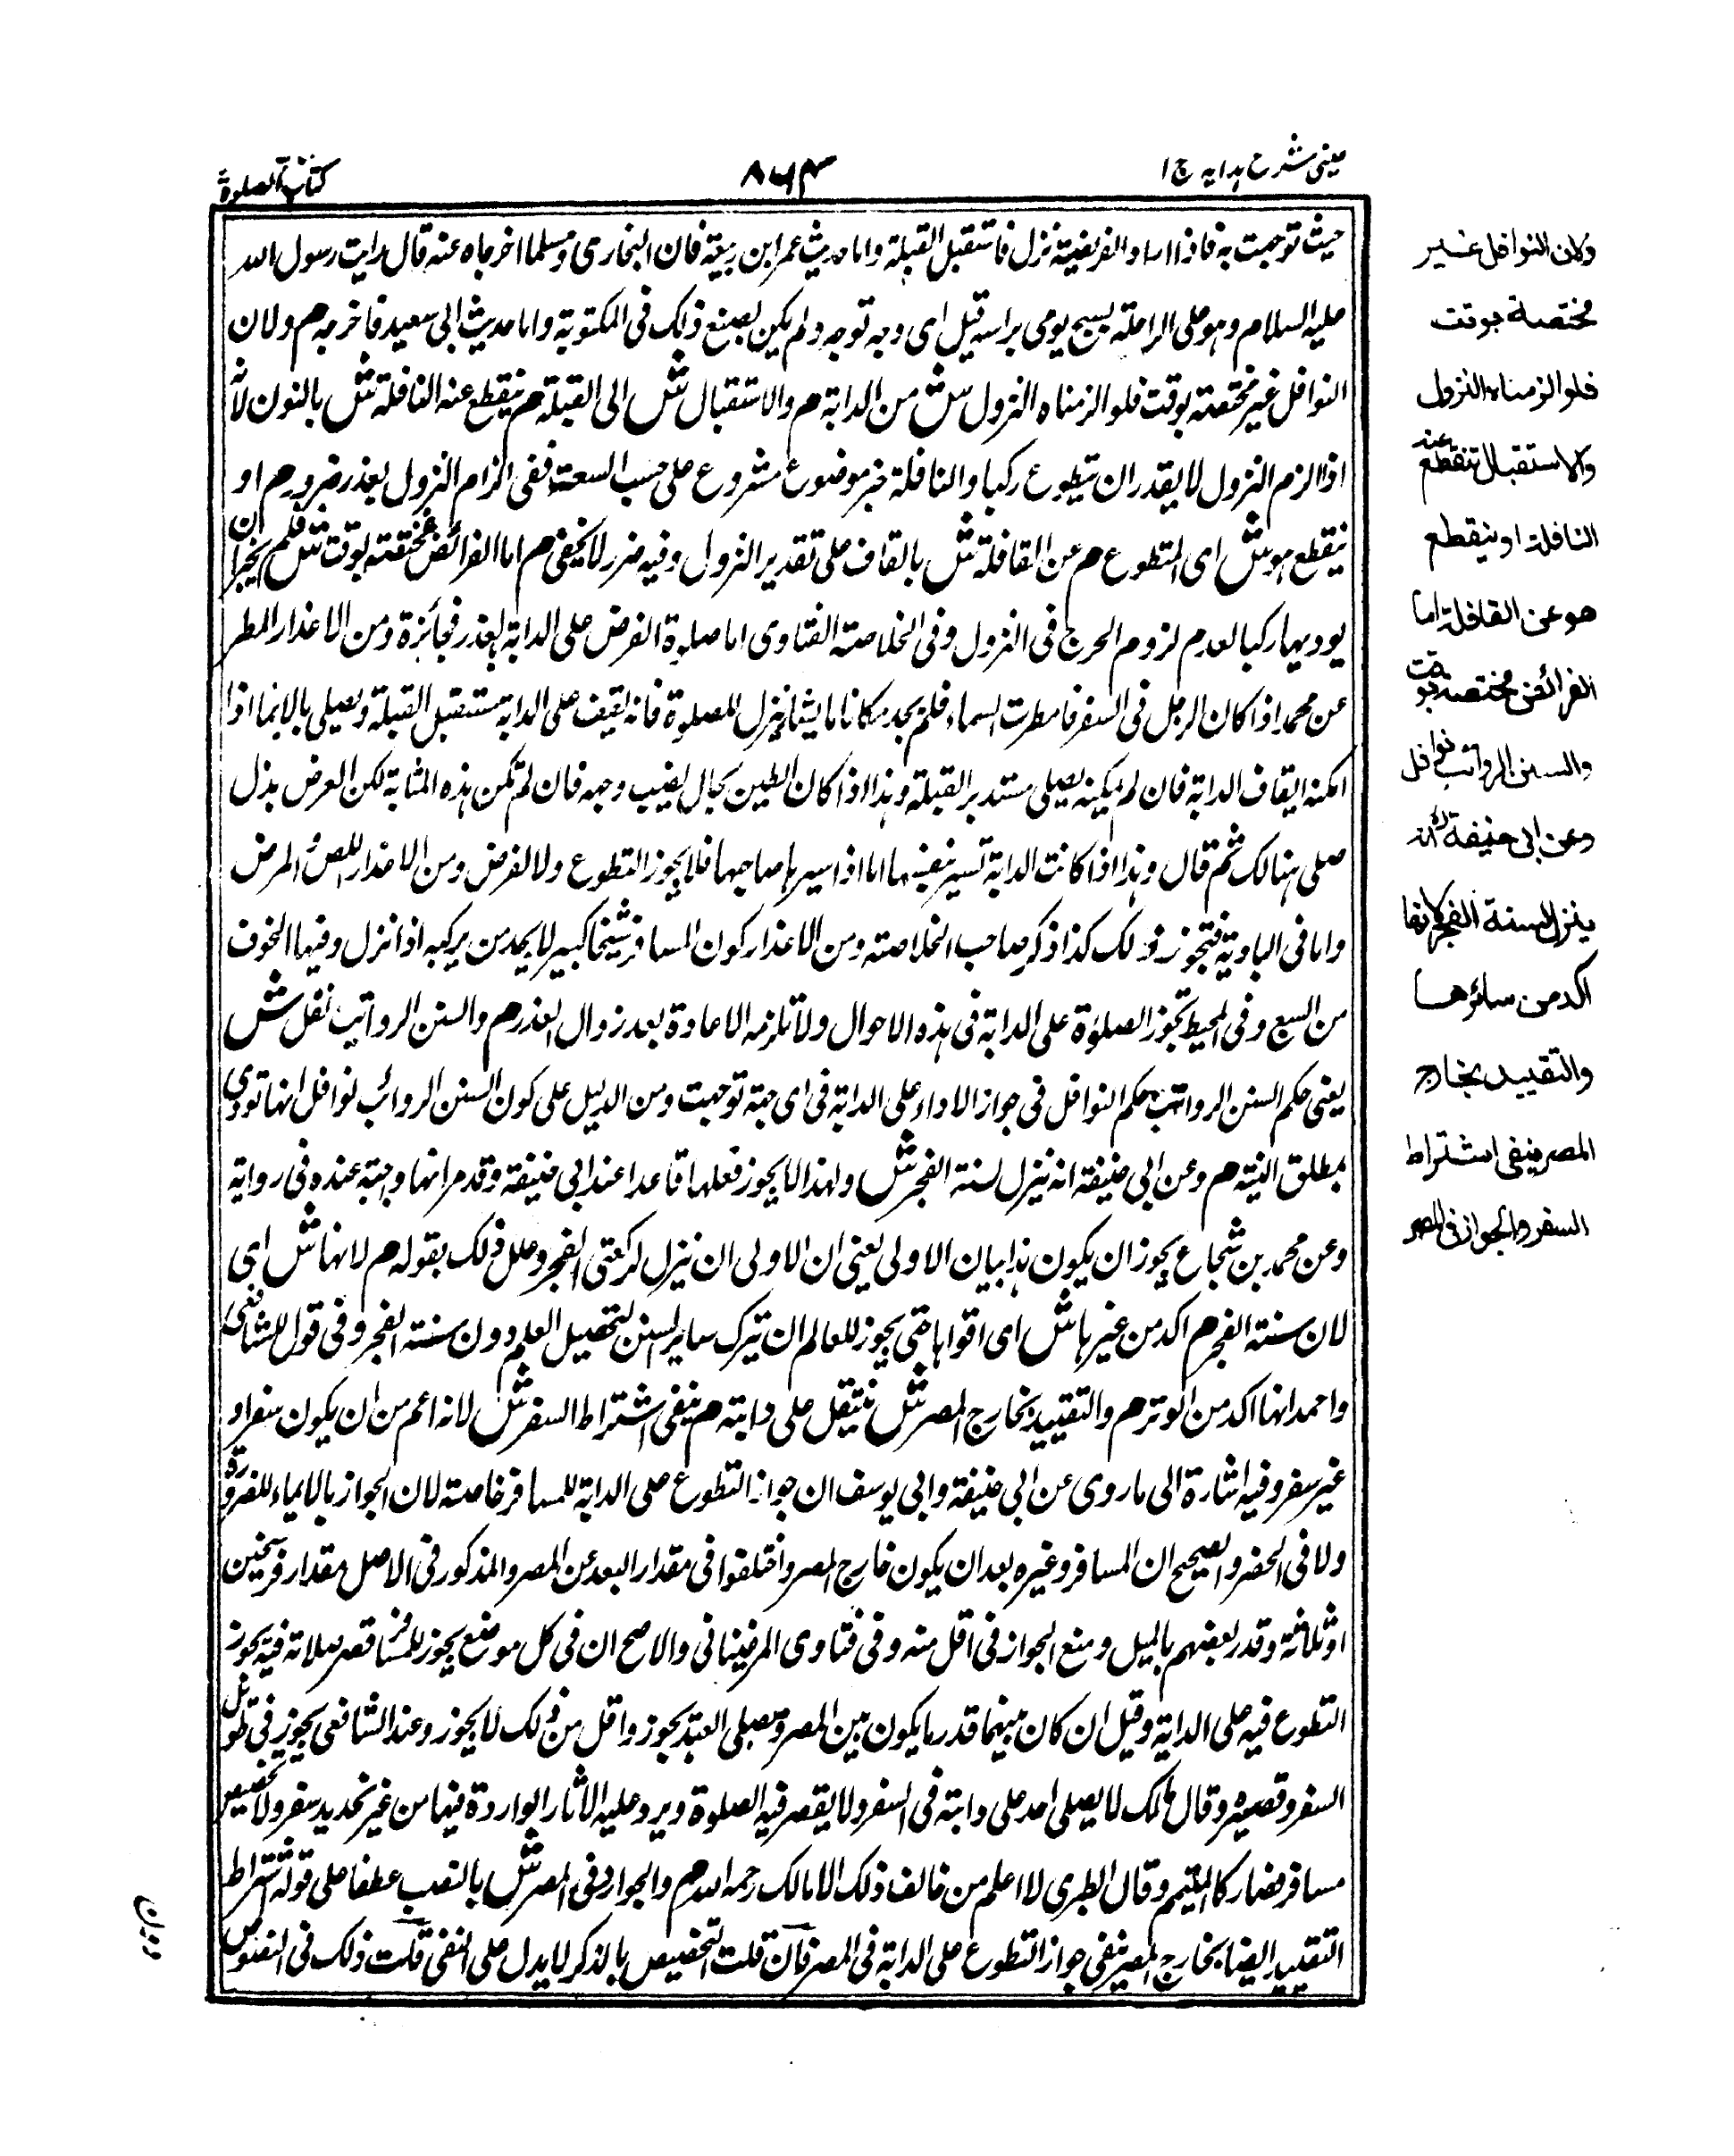 عینی شرح ہدایہ ج ۱
۸۶۴
کتاب الصلوة
حیث توجهت به فاذا اراد الفریضة نزل فاستقبل القبلة واما حدیث عمر ابن ربیعة فان البخاری ومسلما اخرجاه عنه قال رایت رسول الله
علیه السلام وہو علی الراحلة یسبح یومی براسه قبل ای وجه توجه ولم یکن یصنع ذلک فی المکتوبة واما حدیث ابی سعید فاخرجه م ولان
النوافل غیر مختصة بوقت فلو الزمناه النزول ش من الدابة م والاستقبال ش الی القبلة م ینقطع عنه النافلة ش بالنون لانه
اذا الزم النزول لا یقدر ان یتطوع رکبا والنافلة خیر موضوع مشروع علی حسب السعة ففی الزام النزول بغیر ضرورة م او
ینقطع ہو ش ای المتطوع م عن القافلة ش بالقاف علی تقدیر النزول وفیه ضرر لا یخفی م اما الفرائض مختصة بوقت ش فلم یجز ان
یودیها رکبا لعدم لزوم الحرج فی النزول وفی الخلاصة الفتاوی اما صلوة الفرض علی الدابة بعذر فجائزة ومن الاعذار المطر
عن محمد اذا کان الرجل فی السفر فامطرت السماء فلم یجد مکانا یابسا ینزل للصلوة فانه یقف علی الدابة مستقبل القبلة ویصلی بالایما اذا
امکنه ایقاف الدابة فان لم یمکنه یصلی مستدبر القبلة وہذا اذا کان الطین بحال یغیب وجهه فان لم تکن ہذه المثابة لکن الارض بذل
صلی ہنالک ثم قال وہذا اذا کانت الدابة تسیر بنفسها اما اذا سیرہا صاحبها فلا یجوز التطوع ولا الفرض ومن الاعذار اللص والمرض
واما فی البادیة فتجوز ذلک کذا ذکر صاحب الخلاصة ومن الاعذار کون المسافر شیخا کبیر لا یجد من یرکبه اذا نزل وفیها الخوف
من السبع وفی المحیط تجوز الصلوة علی الدابة فی ہذه الاحوال ولا تلزمه الاعادة بعد زوال العذر م والسنن الرواتب نفل ش
یعنی حکم السنن الرواتب حکم النوافل فی جواز الاداء علی الدابة فی ای جهة توجهت ومن الدلیل علی کون السنن الرواتب نوافل انها تودی
بمطلق النیة م وعن ابی حنیفة انه ینزل لسنة الفجر ش ولهذا لا یجوز فعلها قاعدا عند ابی حنیفة وقد مر انها واجبة عنده فی روایة
وعن محمد بن شجاع یجوز ان یکون ہذا بیان الاولی یعنی ان الاولی ان ینزل لرکعتی الفجر وعلل ذلک بقوله م لانها ش ای
لان سنة الفجر م اکد من غیرہا ش ای اقواہا حتی یجوز للعالم ان یترک سایر السنن لتحصیل العلم دون سنة الفجر وفی قول للشافعی
واحمد انها اکد من الوتر م والتقیید بخارج المصر ش یتنفل علی دابته م ینفی اشتراط السفر ش لانه اعم من ان یکون سفرا و
غیر سفر وفیه اشارة الی ما روی عن ابی حنیفة وابی یوسف ان جواز التطوع علی الدابة للمسافر خاصة لان الجواز بالایماء للضرورة
ولا فی الحضر والصحیح ان المسافر وغیره بعد ان یکون خارج المصر واختلفوا فی مقدار البعد عن المصر والمذکور فی الاصل مقدار فرسخین
او ثلاثة وقدر بعضهم بالمیل ومنع الجواز فی اقل منه وفی فتاوی المرغینانی والاصح ان فی کل موضع یجوز للمسافر قصر صلاته فیه یجوز
التطوع فیه علی الدابة وقیل ان کان بینهما قدر ما یکون بین المصر ومصلی العید یجوز واقل من ذلک لا یجوز وعند الشافعی یجوز فی طویل
السفر وقصیره وقال مالک لا یصلی احد علی دابته فی السفر ولا یقصر فیه الصلوة ویرد علیه الاثار الواردة فیها من غیر تحدید سفر ولا تخصیص
مسافر فصار کالتیمم وقال الطبری لا اعلم من خالف ذلک الا مالک رحمه الله م والجواز فی المصر ش بالنصب عطفا علی قوله اشتراط
التقیید ایضا بخارج المصر ینفی جواز التطوع علی الدابة فی المصر فان قلت التخصیص بالذکر لا یدل علی النفی قلت ذلک فی النصوص
ولان النوافل غیر
مختصة بوقت
فلو الزمناه النزول
والاستقبال تنقطع عنه
النافلة او ینقطع
هو عن القافلة اما
الفرائض مختصة بوقت
والسنن الرواتب نوافل
وعن ابی حنیفة رح انه
ینزل لسنة الفجر لانها
اکد من سائرها
والتقیید بخارج
المصر ینفی اشتراط
السفر والجواز فی المصر